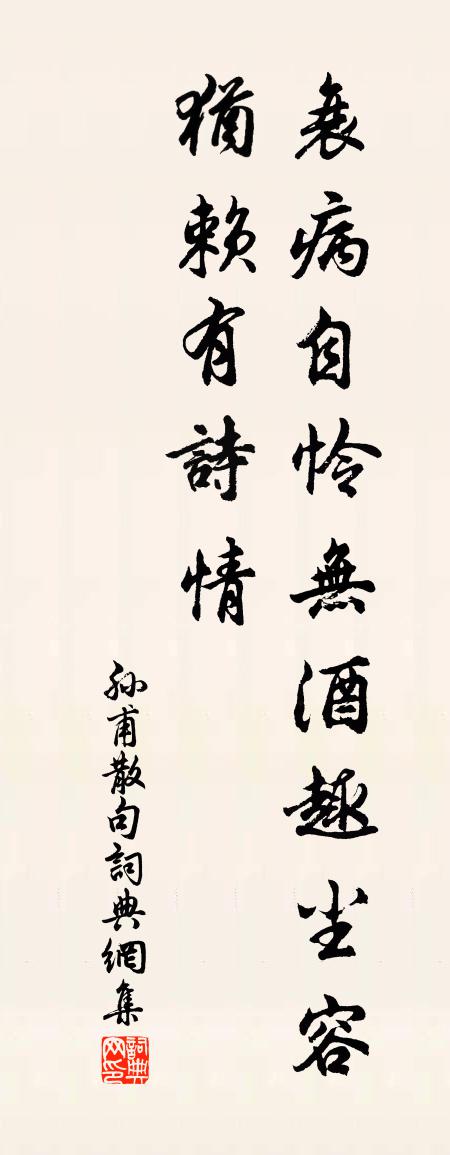 衰病自怜無酒趣尘容
猶赖有詩情
孙甫散句詞典網集
詞典网印